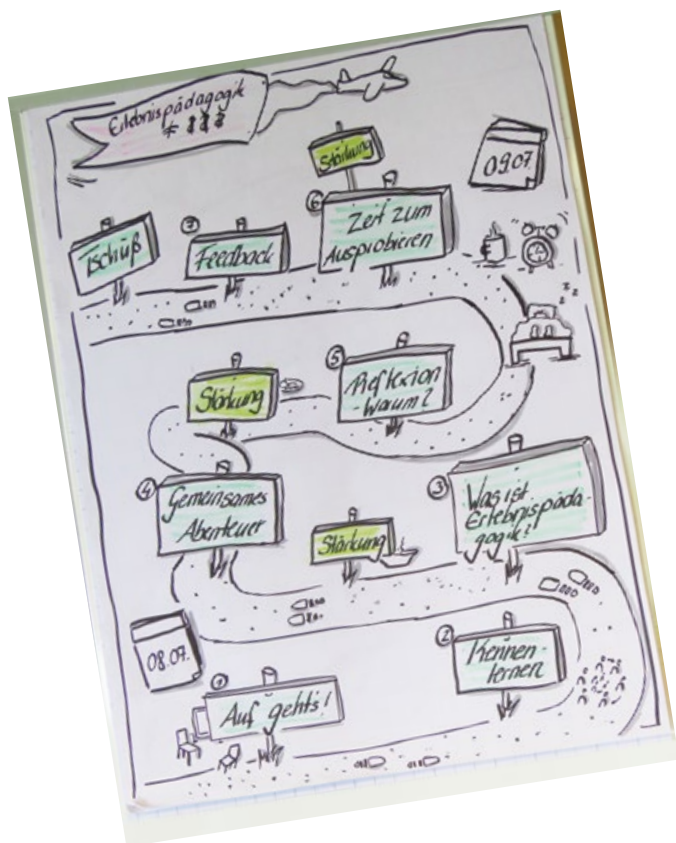 Erlebnispädagogik
Stärkung
09.07.
Tschüß
7
Feedback
6
Zeit zum
Ausprobieren
z z
Stärkung
5
Reflexion
- Warum?
4
Gemeinsames
Abenteuer
Stärkung
3
Was ist
Erlebnispäda-
gogik?
08.07.
1
Auf geht's!
2
Kennen-
lernen